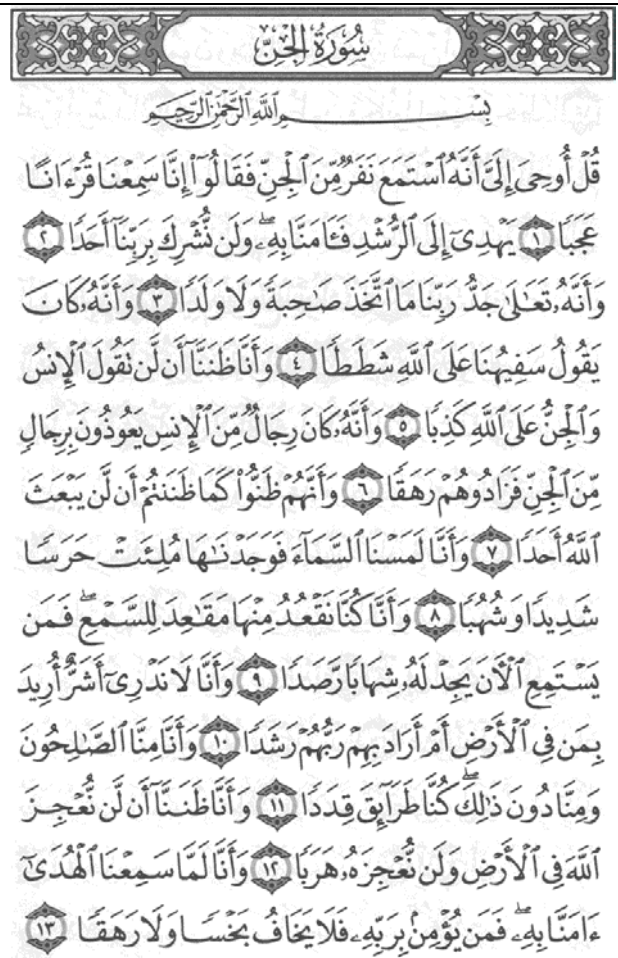 سُورَةُ الْجِنِّ
بِسْمِ اللَّهِ الرَّحْمَٰنِ الرَّحِيمِ
قُلْ أُوحِيَ إِلَيَّ أَنَّهُ ٱسْتَمَعَ نَفَرٌ مِّنَ ٱلْجِنِّ فَقَالُوٓا۟ إِنَّا سَمِعْنَا قُرْءَانًا
عَجَبًا ١ يَهْدِىٓ إِلَى ٱلرُّشْدِ فَـَٔامَنَّا بِهِۦ ۖ وَلَن نُّشْرِكَ بِرَبِّنَآ أَحَدًا ٢
وَأَنَّهُۥ تَعَٰلَىٰ جَدُّ رَبِّنَا مَا ٱتَّخَذَ صَٰحِبَةً وَلَا وَلَدًا ٣ وَأَنَّهُۥ كَانَ
يَقُولُ سَفِيهُنَا عَلَى ٱللَّهِ شَطَطًا ٤ وَأَنَّا ظَنَنَّآ أَن لَّن تَقُولَ ٱلْإِنسُ
وَٱلْجِنُّ عَلَى ٱللَّهِ كَذِبًا ٥ وَأَنَّهُۥ كَانَ رِجَالٌ مِّنَ ٱلْإِنسِ يَعُوذُونَ بِرِجَالٍ
مِّنَ ٱلْجِنِّ فَزَادُوهُمْ رَهَقًا ٦ وَأَنَّهُمْ ظَنُّوا۟ كَمَا ظَنَنتُمْ أَن لَّن يَبْعَثَ
ٱللَّهُ أَحَدًا ٧ وَأَنَّا لَمَسْنَا ٱلسَّمَآءَ فَوَجَدْنَٰهَا مُلِئَتْ حَرَسًا
شَدِيدًا وَشُهُبًا ٨ وَأَنَّا كُنَّا نَقْعُدُ مِنْهَا مَقَٰعِدَ لِلسَّمْعِ ۖ فَمَن
يَسْتَمِعِ ٱلْـَٔانَ يَجِدْ لَهُۥ شِهَابًا رَّصَدًا ٩ وَأَنَّا لَا نَدْرِىٓ أَشَرٌّ أُرِيدَ
بِمَن فِى ٱلْأَرْضِ أَمْ أَرَادَ بِهِمْ رَبُّهُمْ رَشَدًا ١٠ وَأَنَّا مِنَّا ٱلصَّٰلِحُونَ
وَمِنَّا دُونَ ذَٰلِكَ ۖ كُنَّا طَرَآئِقَ قِدَدًا ١١ وَأَنَّا ظَنَنَّآ أَن لَّن نُّعْجِزَ
ٱللَّهَ فِى ٱلْأَرْضِ وَلَن نُّعْجِزَهُۥ هَرَبًا ١٢ وَأَنَّا لَمَّا سَمِعْنَا ٱلْهُدَىٰٓ
ءَامَنَّا بِهِۦ ۖ فَمَن يُؤْمِنۢ بِرَبِّهِۦ فَلَا يَخَافُ بَخْسًا وَلَا رَهَقًا ١٣